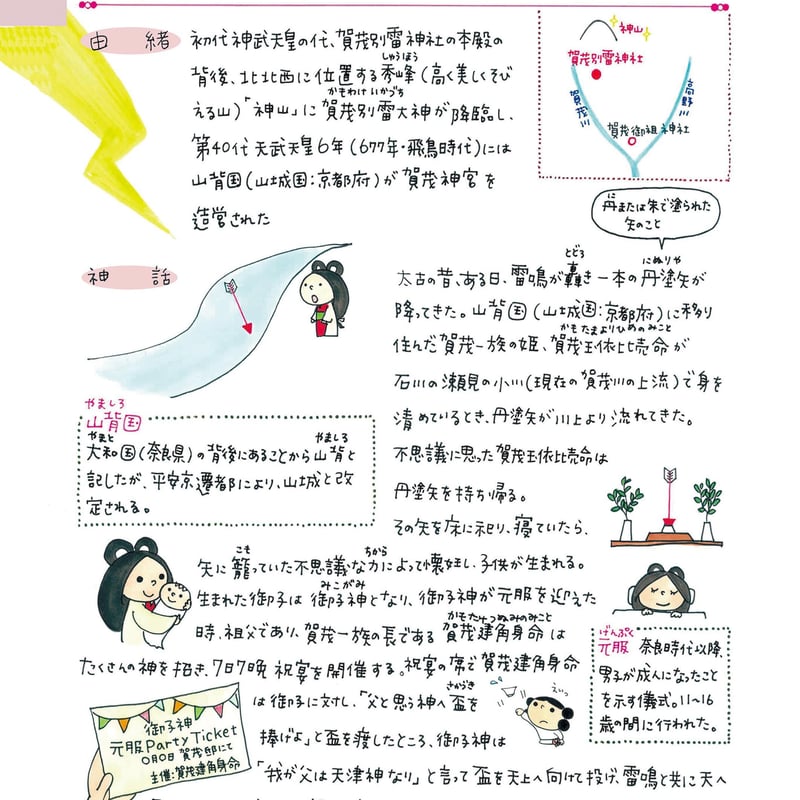 由緒
初代神武天皇の代、賀茂別雷神社の本殿の
背後、北北西に位置する秀峰(高く美しくそび
しゅうほう
える山)「神山」に賀茂別雷大神が降臨し、
かもわけいかづち
第40代天武天皇6年(677年・飛鳥時代)には
山背国(山城国:京都府)が賀茂神宮を
造営された
神山
賀茂別雷神社
賀茂川
高野川
賀茂御祖神社
丹または朱で塗られた
に
矢のこと
神話
太古の昔、ある日、雷鳴が轟き一本の丹塗矢が
とどろ
にぬりや
降ってきた。山背国(山城国:京都府)に移り
住んだ賀茂一族の姫、賀茂玉依比売命が
かもたまよりひめのみこと
石川の瀬見の小川(現在の賀茂川の上流)で身を
清めているとき、丹塗矢が川上より流れてきた。
不思議に思った賀茂玉依比売命は
丹塗矢を持ち帰る。
その矢を床に祀り、寝ていたら、
矢に籠っていた不思議な力によって懐妊し、子供が生まれる。
こも
ちから
生まれた御子は御子神となり、御子神が元服を迎えた
みこがみ
時、祖父であり、賀茂一族の長である賀茂建角身命は
かもたけつぬみのみこと
たくさんの神を招き、7日7晩祝宴を開催する。祝宴の席で賀茂建角身命
は御子に対し、「父と思う神へ盃を
さかづき
捧げよ」と盃を渡したところ、御子神は
「我が父は天津神なり」と言って盃を天上へ向けて投げ、雷鳴と共に天へ
やましろ
山背国
大和国(奈良県)の背後にあることから山背と
やまと
やましろ
記したが、平安京遷都により、山城と改
定される。
げんぷく
元服 奈良時代以降、
男子が成人になったこと
を示す儀式。11~16
歳の間に行われた。
えいっ
御子神
元服Party Ticket
○月○日 賀茂邸にて
主催:賀茂建角身命